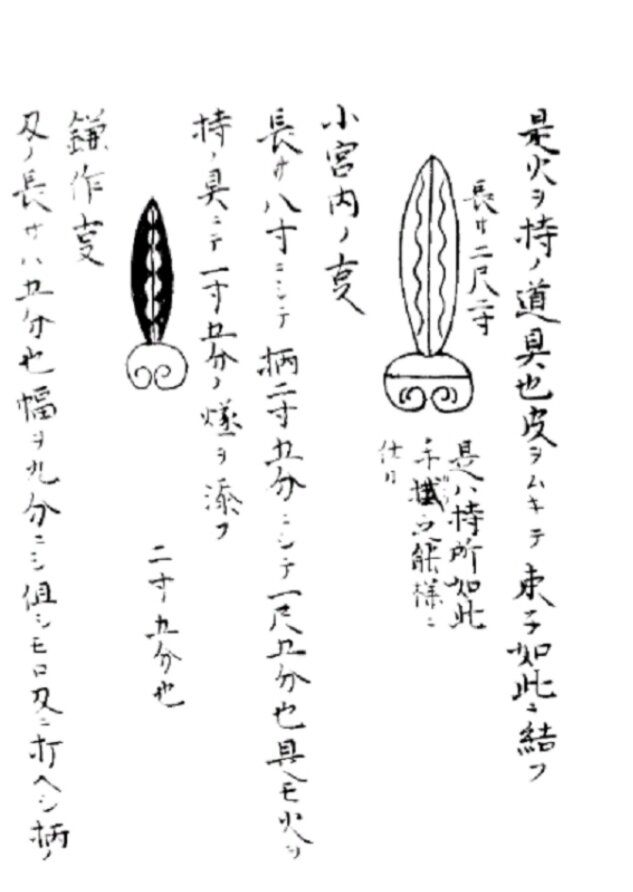 是火ヲ持ノ道具也皮ヲムキテ束子如此ニ結フ
長サ二尺二寸
是ハ持所如此
手
仕リ
小宮内ノ亥
長サ八寸ニシテ柄二寸五分ニシテ一尺五分也具ヘモ火ヲ
持ノ具ニテ一寸五分ノ燧ヲ添フ
二寸五分也
鎌作亥
刄ノ長サ八五分也幅ヲ九分ニシ但シモロ刄ニ打ヘシ柄ノ